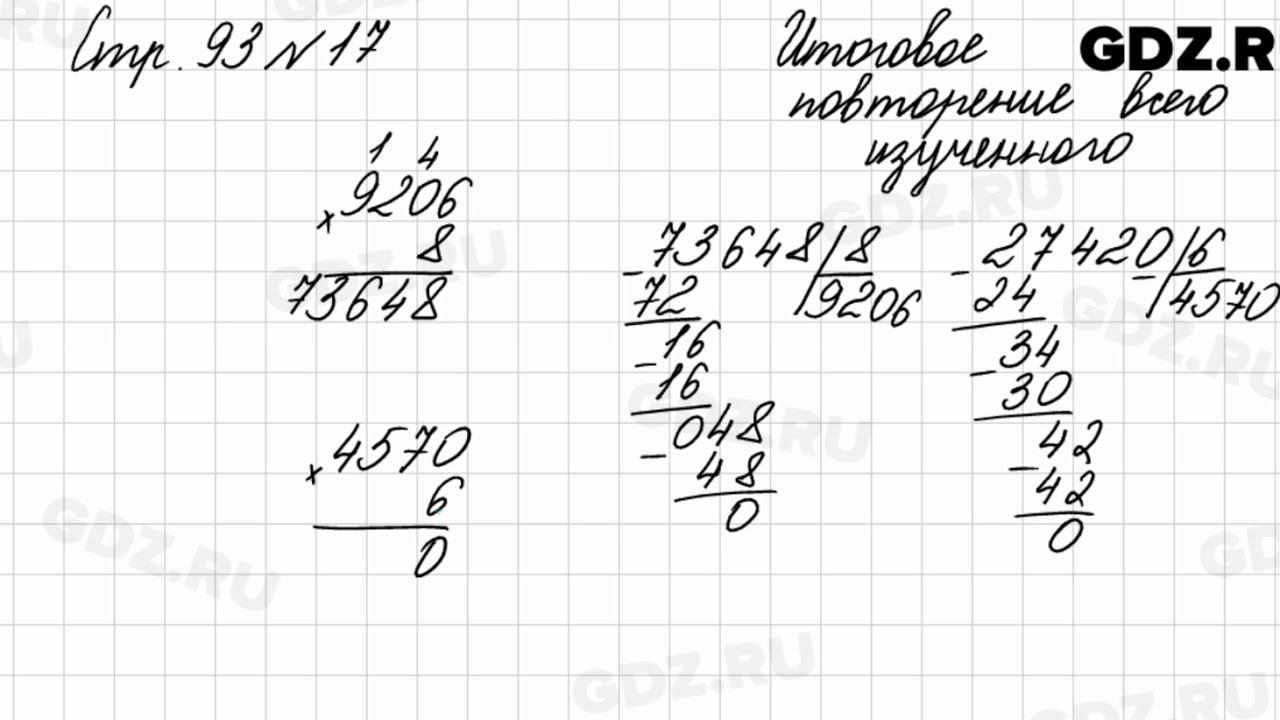 Стр. 93 № 17
Итоговое
повторение всего
изученного
GDZ.R
1 4
× 9206
8
73648
× 4570
6
0
- 73648 | 8
72 | 9206
16
- 16
048
- 48
0
- 27420 | 6
24 - | 4570
34
- 30
42
- 42
0
GDZ.RU
GDZ.RU
GDZ.RU
GDZ.RU
GDZ.RU
GDZ.RU
GDZ.RU